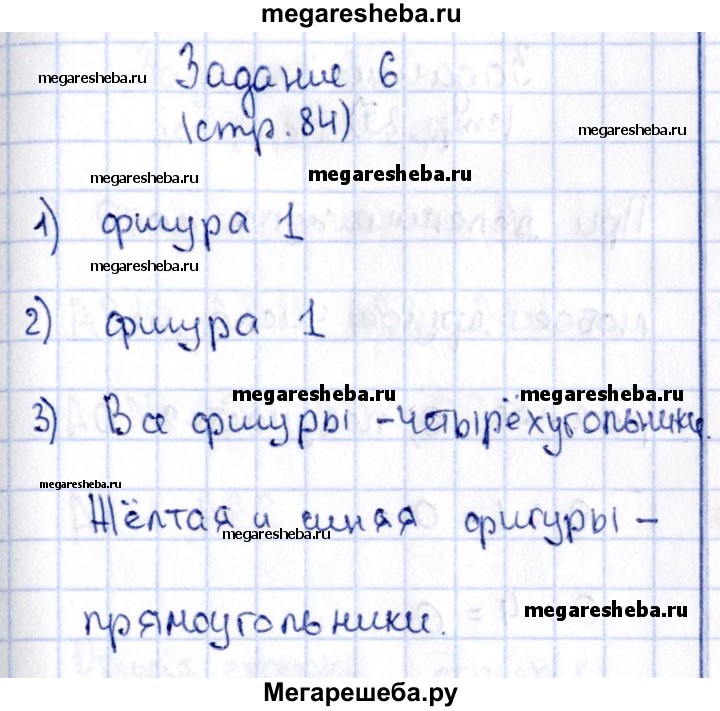 megaresheba.ru
Задание 6
megaresheba.ru
(стр. 84)
megaresheba.ru
megaresheba.ru
megaresheba.ru
1) фигура 1
megaresheba.ru
2) фигура 1
megaresheba.ru
megaresheba.ru
3) Все фигуры - четырёхугольники.
megaresheba.ru
Жёлтая и синяя фигуры -
megaresheba.ru
megaresheba.ru
прямоугольники.
Мегарешеба.ру